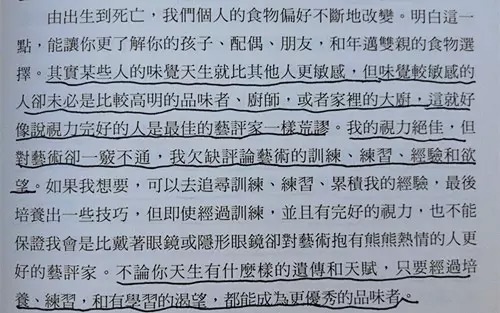 由出生到死亡，我們個人的食物偏好不斷地改變。明白這一
點，能讓你更了解你的孩子、配偶、朋友，和年邁雙親的食物選
擇。其實某些人的味覺天生就比其他人更敏感，但味覺較敏感的
人卻未必是比較高明的品味者、廚師，或者家裡的大廚，這就好
像說視力完好的人是最佳的藝評家一樣荒謬。我的視力絕佳，但
對藝術卻一竅不通，我欠缺評論藝術的訓練、練習、經驗和欲
望。如果我想要，可以去追尋訓練、練習、累積我的經驗，最後
培養出一些技巧，但即使經過訓練，並且有完好的視力，也不能
保證我會是比戴著眼鏡或隱形眼鏡卻對藝術抱有熊熊熱情的人更
好的藝評家。不論你天生有什麼樣的遺傳和天賦，只要經過培
養、練習，和有學習的渴望，都能成為更優秀的品味者。